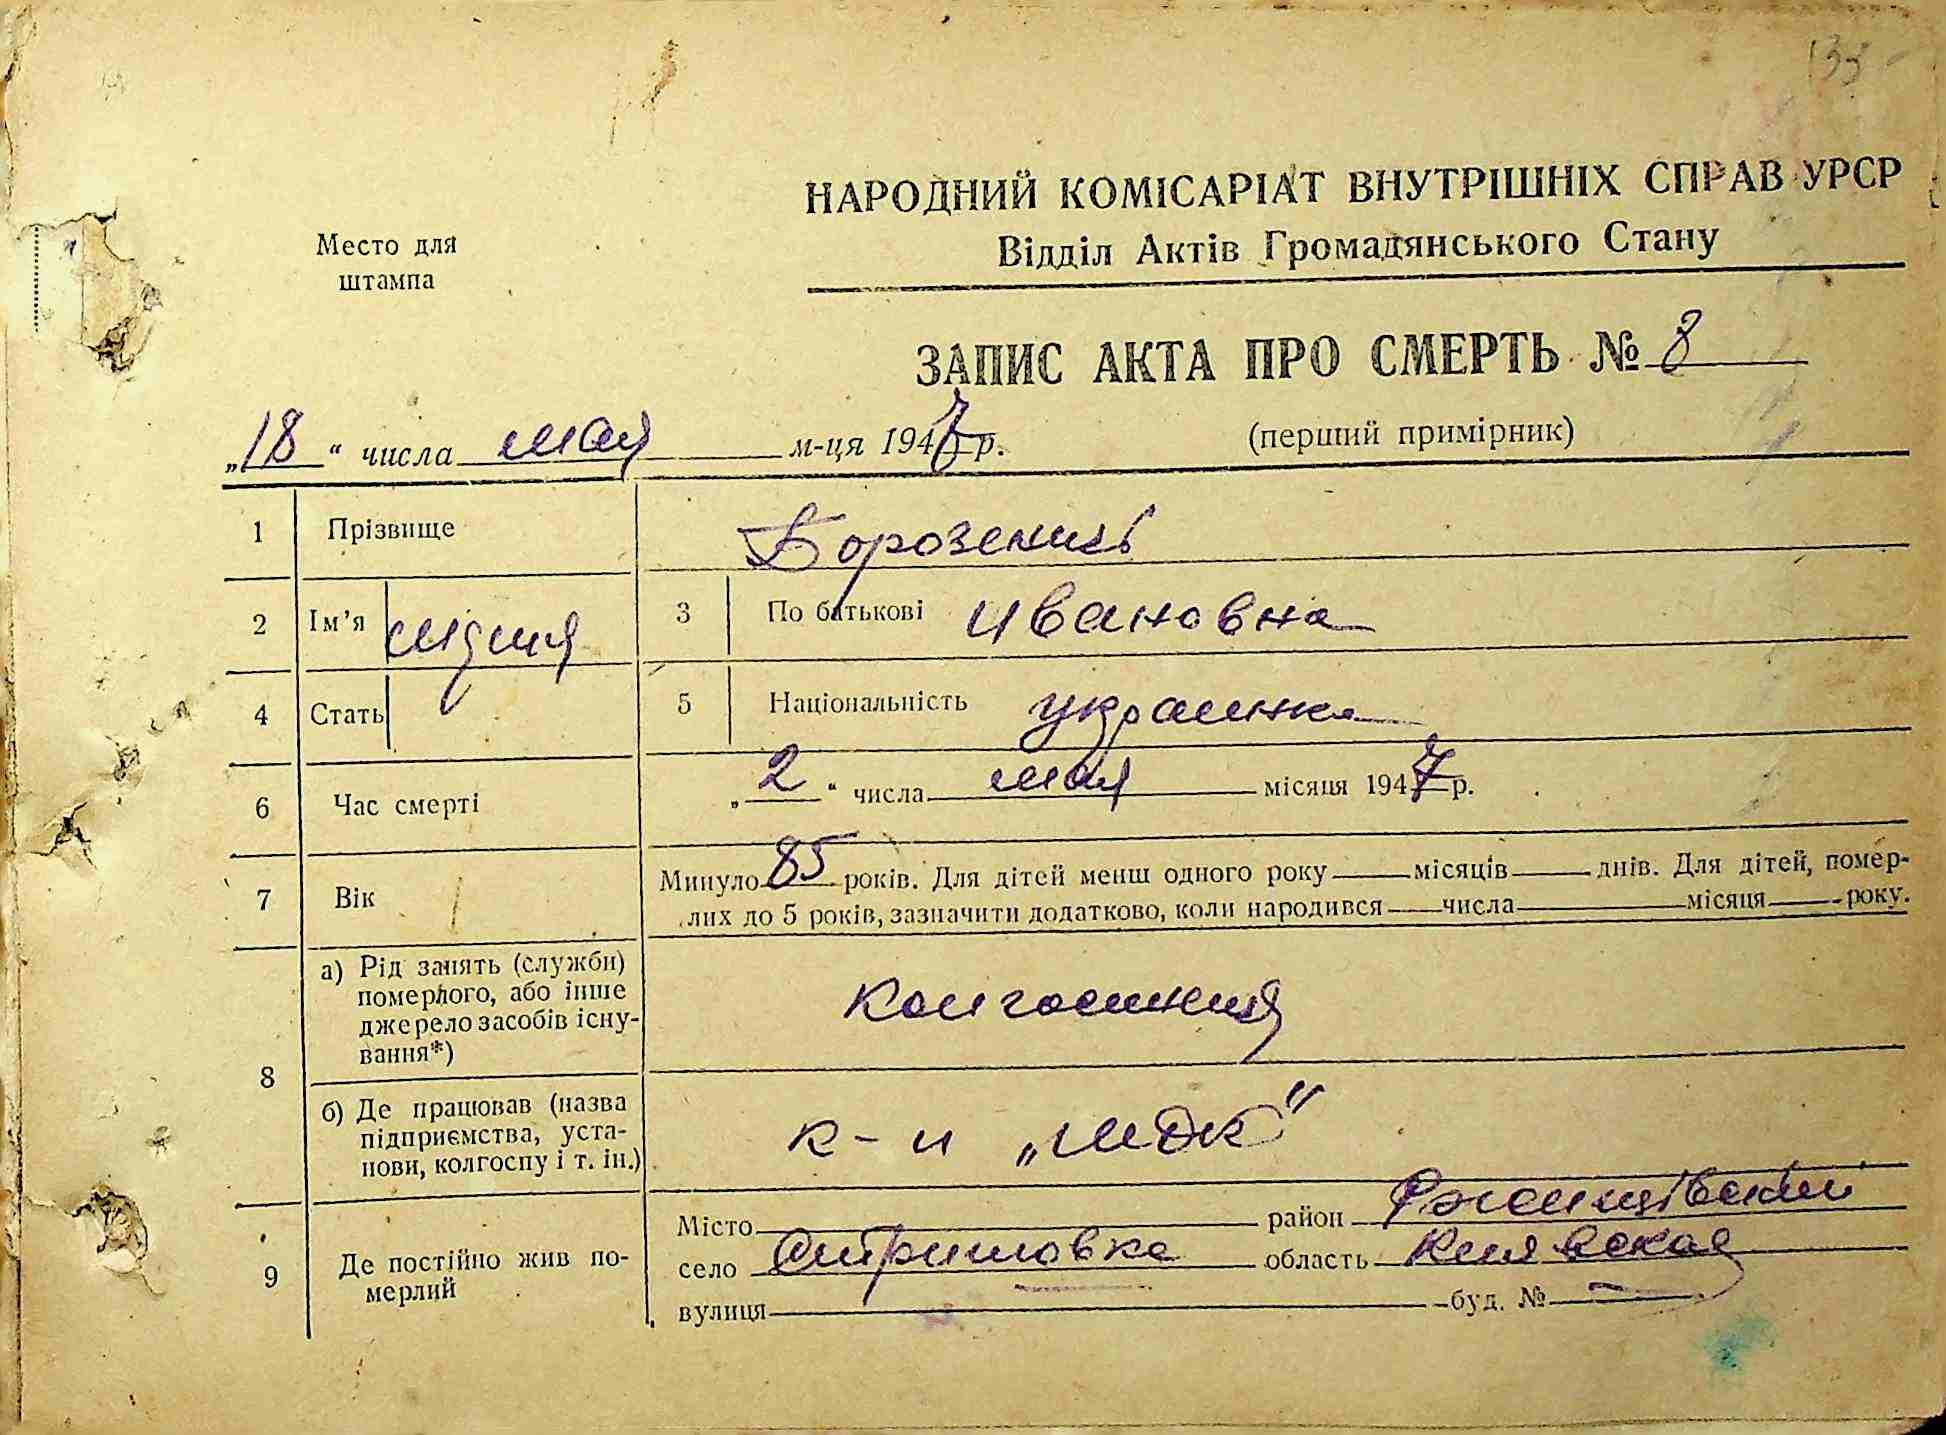 133
НАРОДНИЙ КОМІСАРІАТ ВНУТРІШНІХ СПРАВ УРСР
Відділ Актів Громадянського Стану
Место для
штампа
ЗАПИС АКТА ПРО СМЕРТЬ № 8
„18“ числа мая м-ця 1947 р.
(перший примірник)
1 Прізвище Борозенець
2 Ім’я
3 По батькові Ивановна
4 Стать
5 Національність украинка
6 Час смерті „2“ числа мая місяця 1947 р.
7 Вік Минуло 85 років. Для дітей менш одного року місяців днів. Для дітей, помер-
лих до 5 років, зазначити додатково, коли народився числа місяця року.
8 а) Рід занять (служби)
померлого, або інше
джерело засобів існу-
вання*)
колгоспниця
б) Де працював (назва
підприємства, уста-
нови, колгоспу і т. ін.)
к-п
9 Де постійно жив по-
мерлий
Місто район Ржищівский
село Стритовка область Киевская
вулиця буд. №